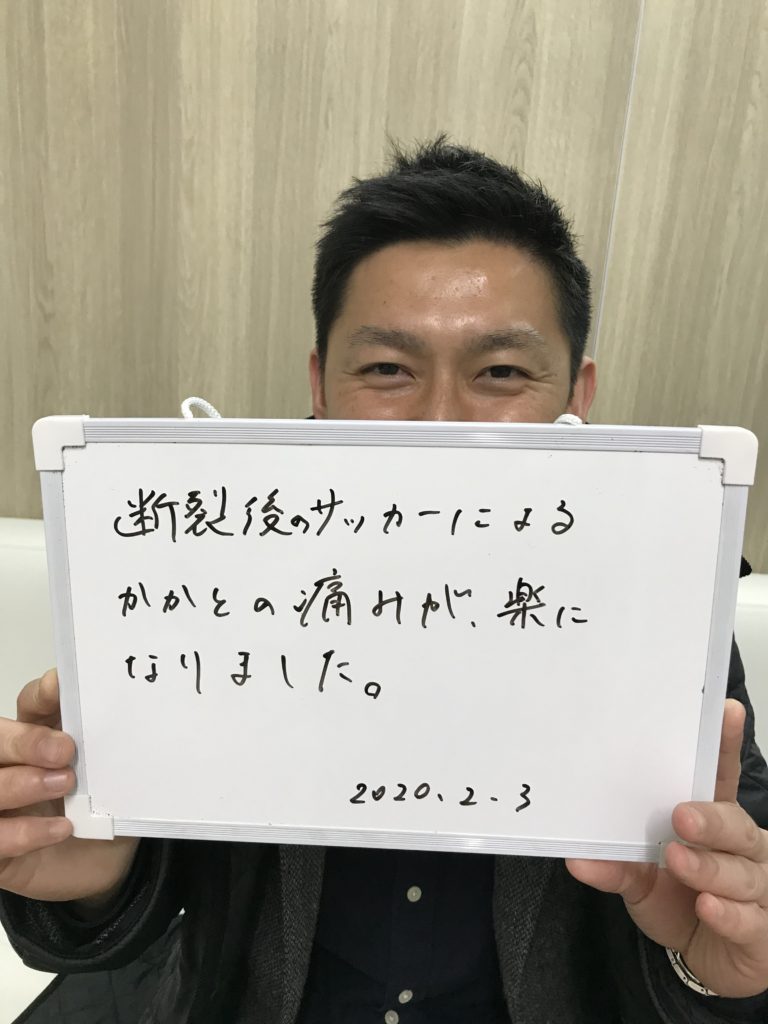 断裂後のサッカーによる
かかとの痛みが、楽に
なりました。
2020.2.3